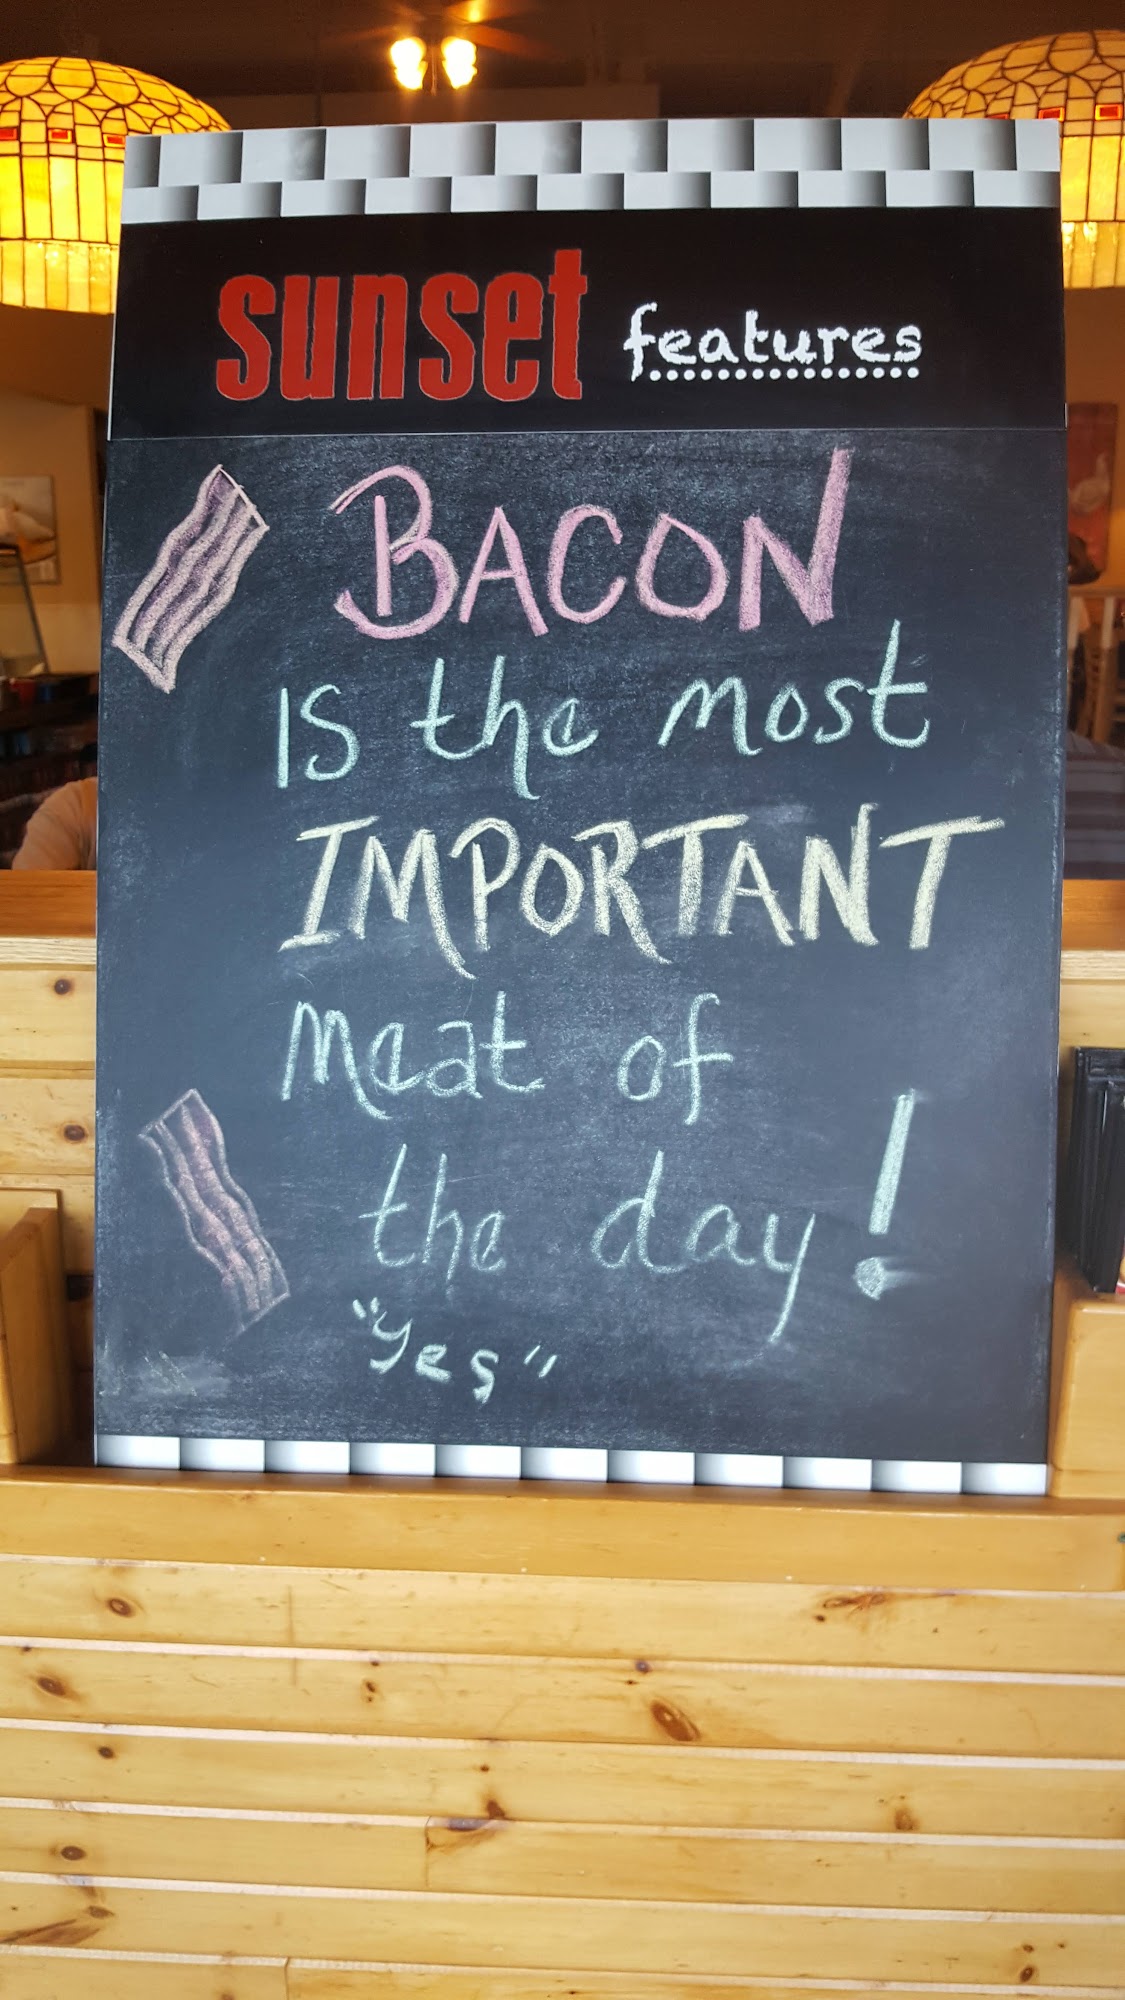 sunset features
BACON
IS the most
IMPORTANT
meat of
the day!
"yes"